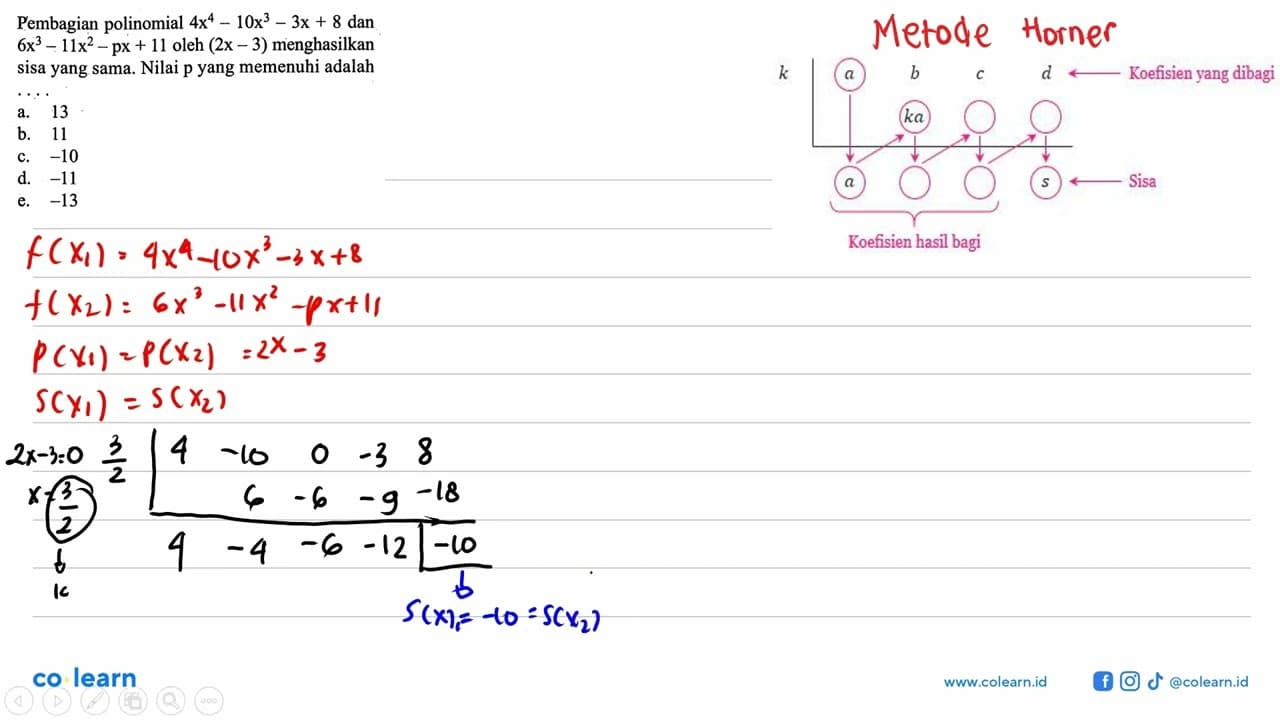 Pembagian polinomial 4x⁴ – 10x³ – 3x + 8 dan
6x³ – 11x² – px + 11 oleh (2x – 3) menghasilkan
sisa yang sama. Nilai p yang memenuhi adalah
. . . .
a. 13
b. 11
c. –10
d. –11
e. –13
Metode Horner
k a b c d Koefisien yang dibagi
ka
a s Sisa
Koefisien hasil bagi
f(x₁) = 4x⁴ - 10x³ - 3x + 8
f(x₂) = 6x³ - 11x² - px + 11
P(x₁) = P(x₂) = 2x - 3
S(x₁) = S(x₂)
2x-3=0 3/2 4 -10 0 -3 8
x = 3/2 6 -6 -9 -18
4 -4 -6 -12 -10
k
S(x)₁ = -10 = S(x₂)
co learn
www.colearn.id
@colearn.id